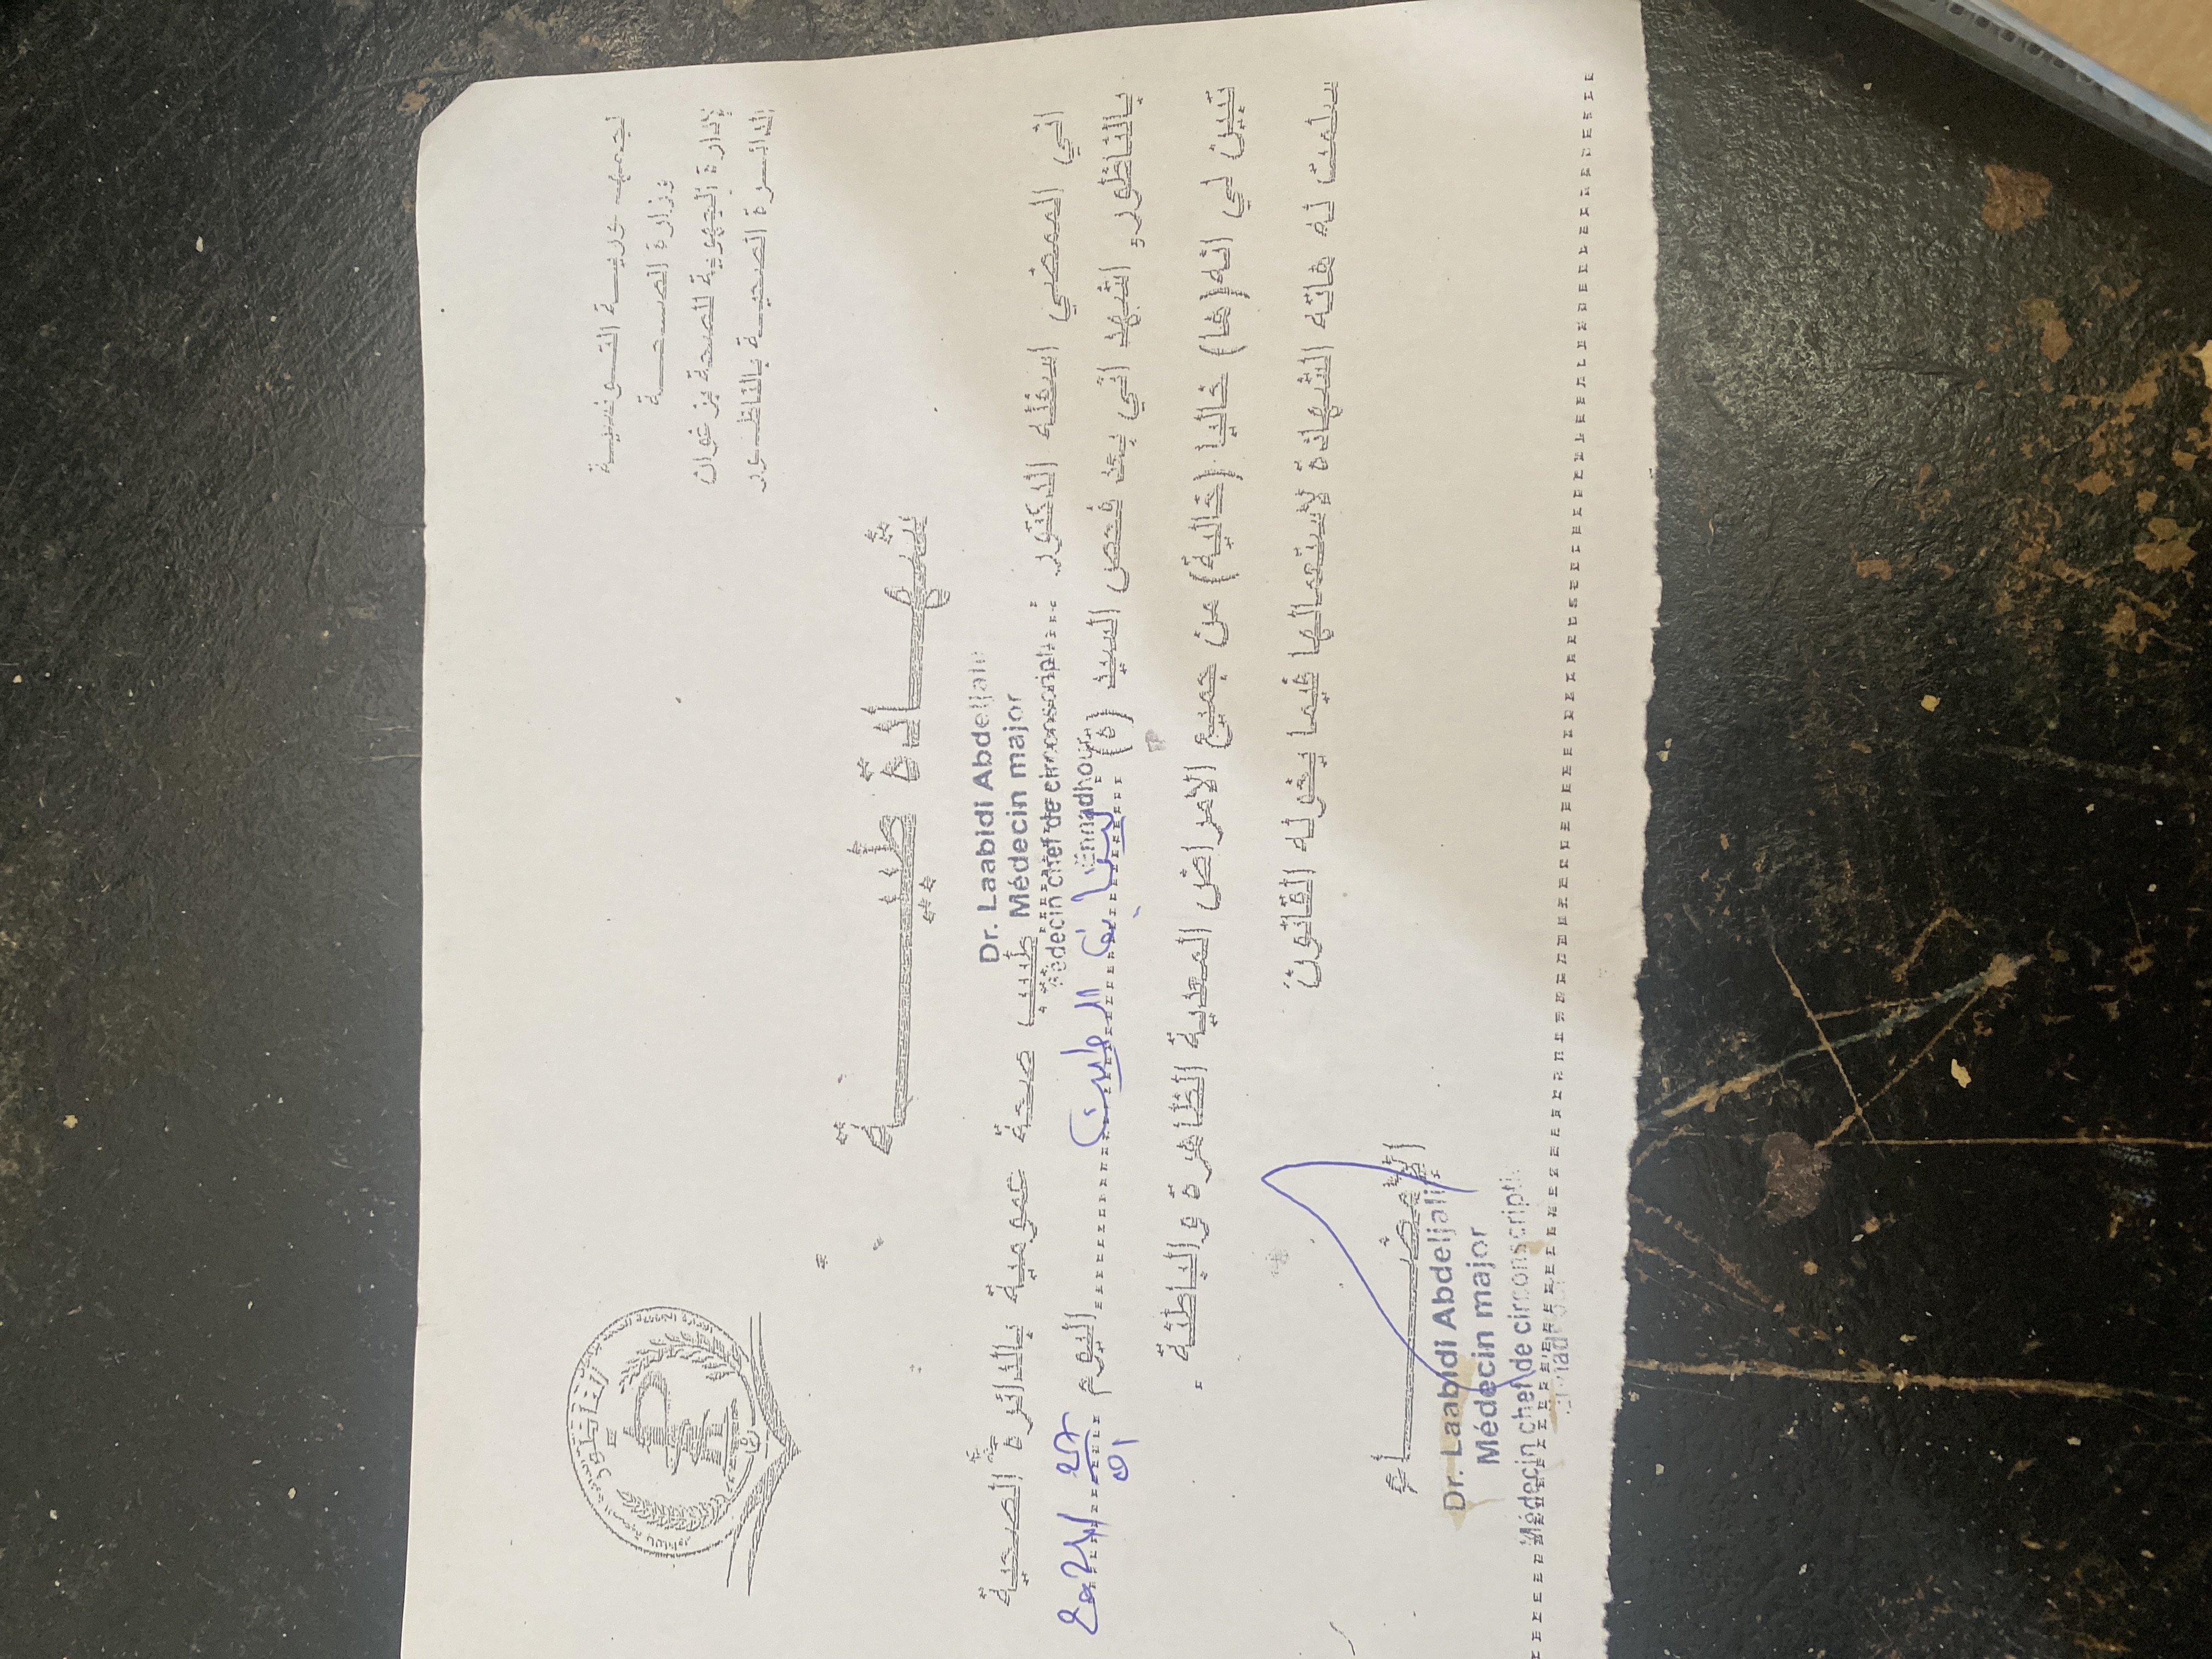 الجمهورية التونسية
وزارة الصحة
الإدارة الجهوية للصحة بزغوان
الدائرة الصحية بالناظور
شهادة طبية
Dr. Laabidi Abdeljalil
Médecin major
Médecin chef de circonscription
Ennadhour
اني الممضي اسفله الدكتور طبيب صحة عمومية بالدائرة الصحية
بالناظور، اشهد اني بعد فحص السيد (ة) اليوم
تبين لي انه(ها) خاليا (خالية) من جميع الامراض المعدية الظاهرة والباطنة.
سلمت له هاته الشهادة لاستعمالها فيما يخوله القانون
الإمضاء
Dr. Laabidi Abdeljalil
Médecin major
Médecin chef de circonscripti